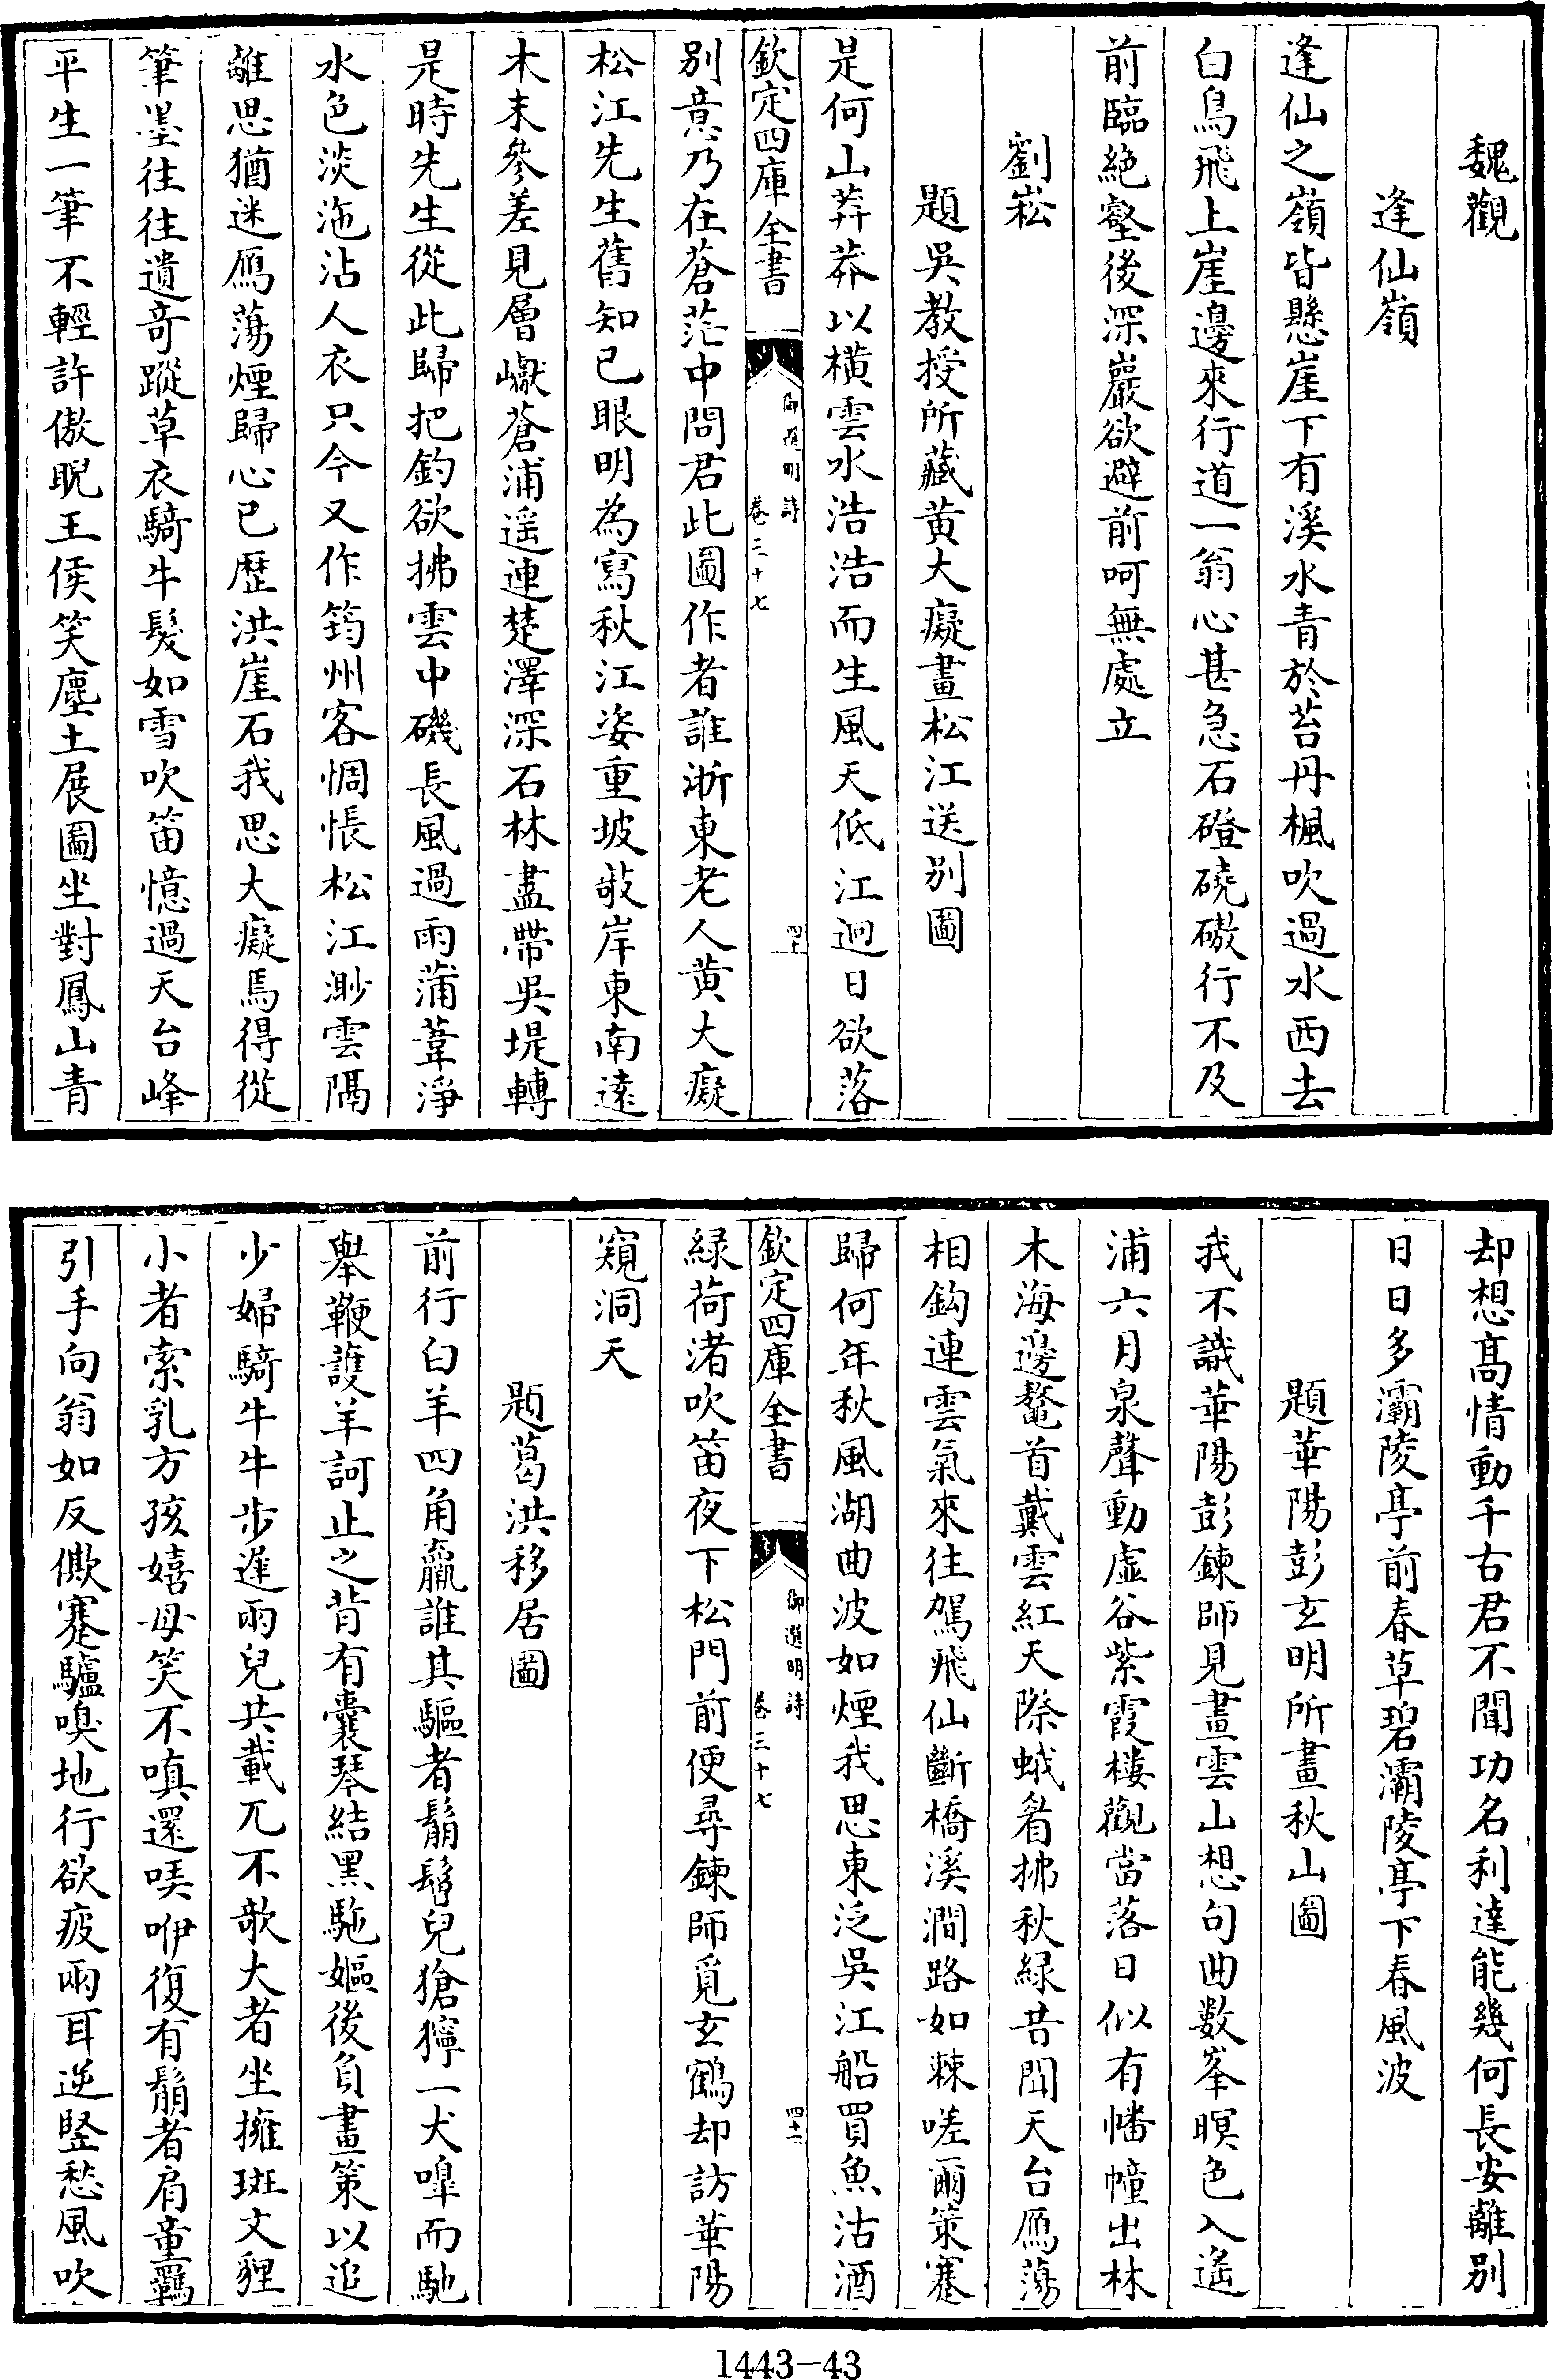 魏觀
逢仙嶺
逢仙之嶺皆懸崖下有溪水青於苔丹楓吹過水西去
白鳥飛上崖邊來行道一翁心甚急石磴磽磝行不及
前臨絶壑後深巖欲避前呵無處立
劉崧
題吳教授所藏黄大癡畫松江送别圖
是何山莽莽以横雲水浩浩而生風天低江迥日欲落
欽定四庫全書
御選明詩
卷三十七
四十
别意乃在蒼茫中問君此圖作者誰浙東老人黄大癡
松江先生舊知已眼明為寫秋江姿重坡㪣岸東南遠
木末參差見層巘蒼浦遥連楚澤深石林盡帶吳堤轉
是時先生從此歸把釣欲拂雲中磯長風過雨蒲葦淨
水色淡沲沾人衣只今又作筠州客惆悵松江渺雲隔
離思猶迷鴈蕩煙歸心已歴洪崖石我思大癡焉得從
筆墨往往遺竒蹤草衣騎牛髮如雪吹笛憶過天台峰
平生一筆不輕許傲睨王侯笑塵土展圖坐對鳳山青
却想髙情動千古君不聞功名利達能幾何長安離别
日日多灞陵亭前春草碧灞陵亭下春風波
題華陽彭玄明所畫秋山圖
我不識華陽彭鍊師見畫雲山想句曲數峯暝色入遙
浦六月泉聲動虛谷紫霞樓觀當落日似有幡幢出林
木海邊鼇首戴雲紅天際蛾眉拂秋緑昔聞天台鴈蕩
相鈎連雲氣來往駕飛仙斷橋溪澗路如棘嗟爾策蹇
歸何年秋風湖曲波如煙我思東泛吳江船買魚沽酒
欽定四庫全書
御選明詩
卷三十七
四十一
緑荷渚吹笛夜下松門前便尋鍊師覓玄鶴却訪華陽
窺洞天
題葛洪移居圖
前行白羊四角羸誰其驅者鬅鬙兒獊獰一犬嘷而馳
舉鞭護羊訶止之背有囊琴結黑駞嫗後負畫策以追
少婦騎牛牛步遲兩兒共載兀不欹大者坐擁斑文貍
小者索乳方孩嬉母笑不嗔還𠴨咿復有鬅者肩童羈
引手向翁如反欺蹇驢嗅地行欲疲兩耳逆竪愁風吹
1443-43